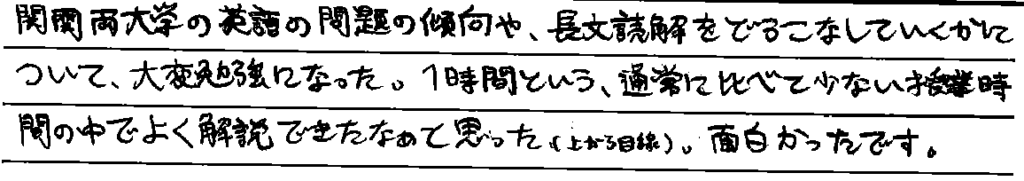 関関両大学の英語の問題の傾向や、長文読解をどうこなしていくかに
ついて、大変勉強になった。1時間という、通常に比べて少ない授業時
間の中でよく解説できたなぁと思った(上から目線)。面白かったです。